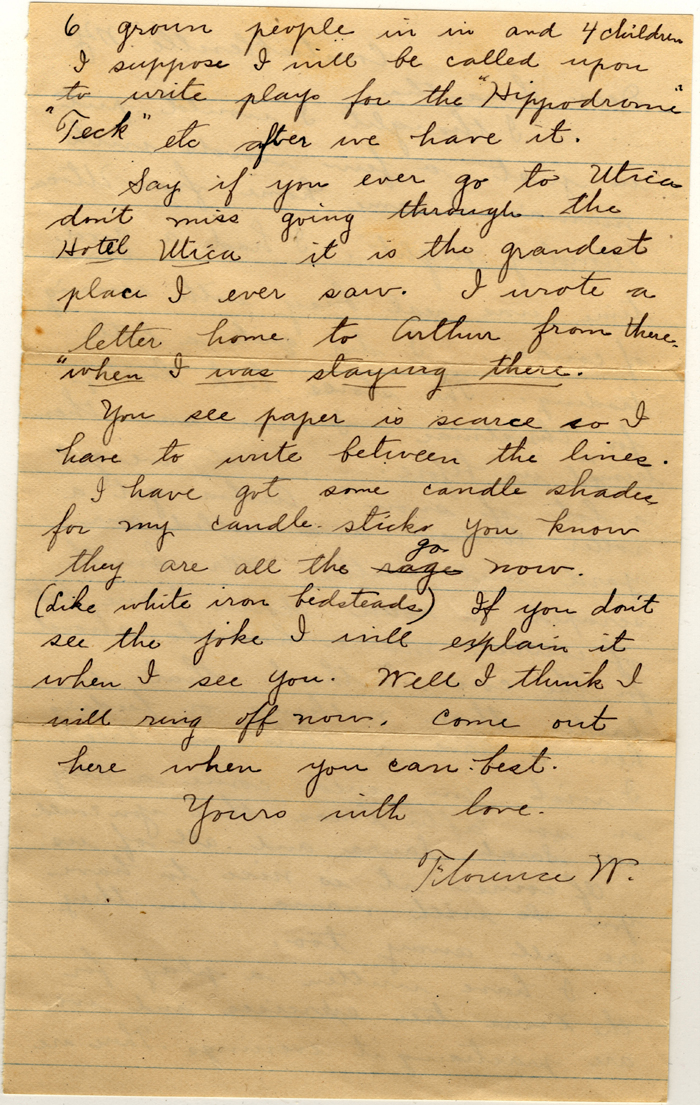 6 grown people in in and 4 children
I suppose I will be called upon
to write plays for the "Hippodrome"
"Teck" etc after we have it.
Say if you ever go to Utica
don't miss going through the
Hotel Utica it is the grandest
place I ever saw. I wrote a
letter home to Arthur from there.
"when I was staying there.
You see paper is scarce so I
have to write between the lines.
I have got some candle shades
for my candle-sticks you know
go
they are all the rage now.
(Like white iron bedsteads) If you don't
see the joke I will explain it
when I see you. Well I think I
will ring off now. Come out
here when you can best.
Yours with love.
Florence W.